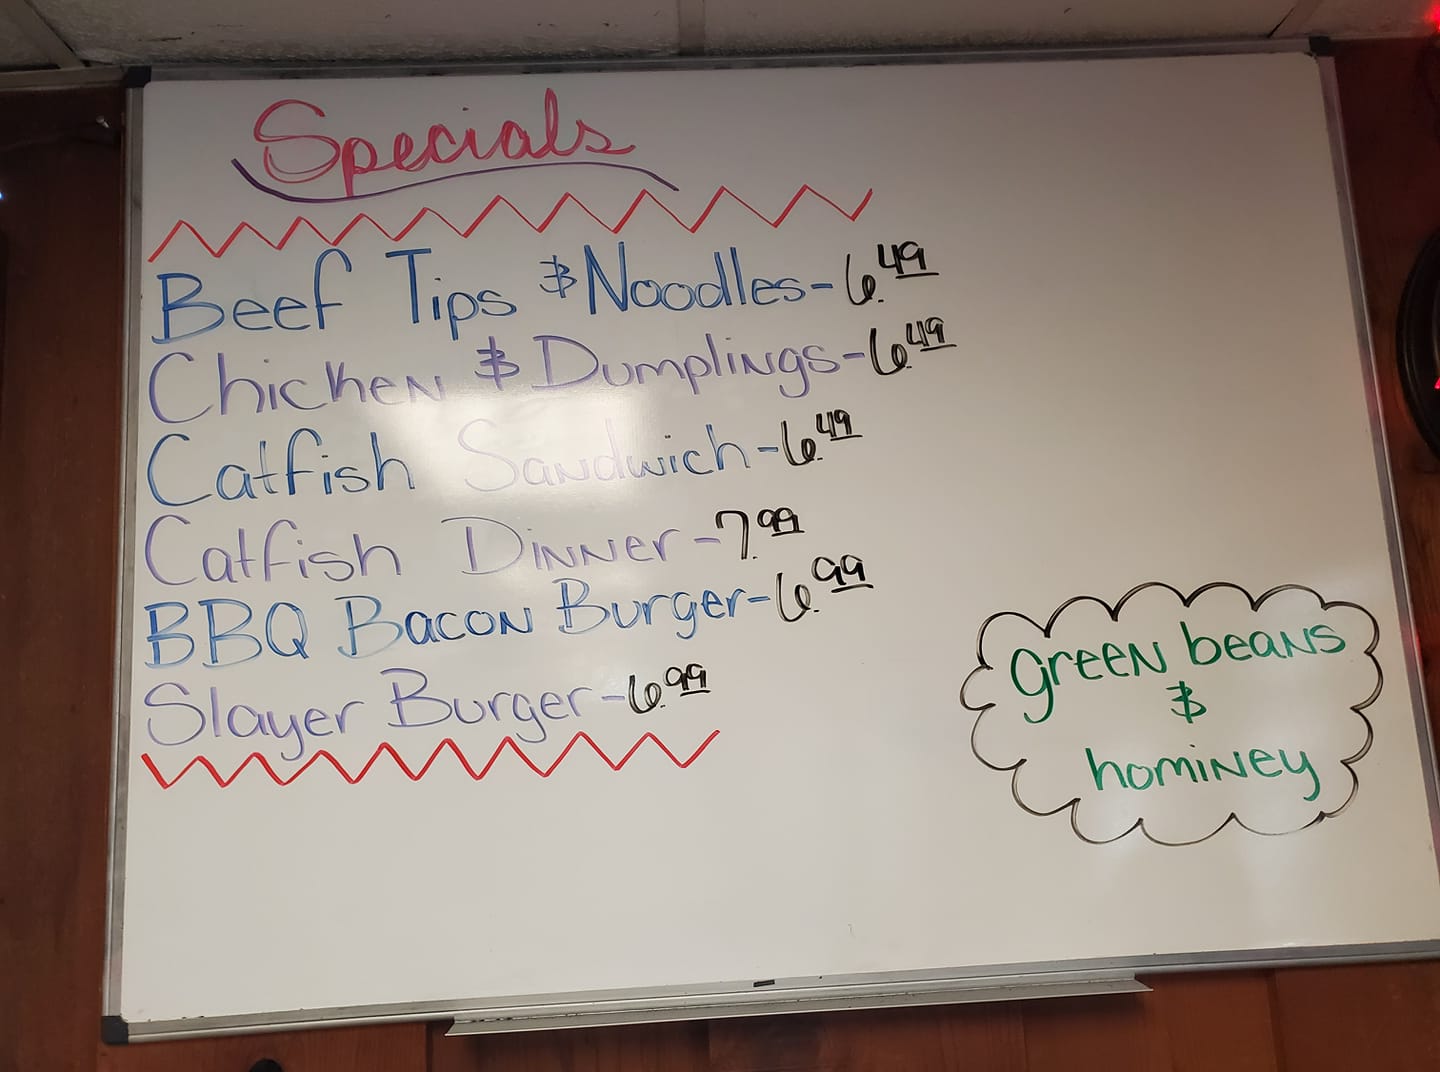 Specials
Beef Tips & Noodles - 6.49
Chicken & Dumplings - 6.49
Catfish Sandwich - 6.49
Catfish Dinner - 7.99
BBQ Bacon Burger - 6.99
Slayer Burger - 6.99
green beans
&
hominey